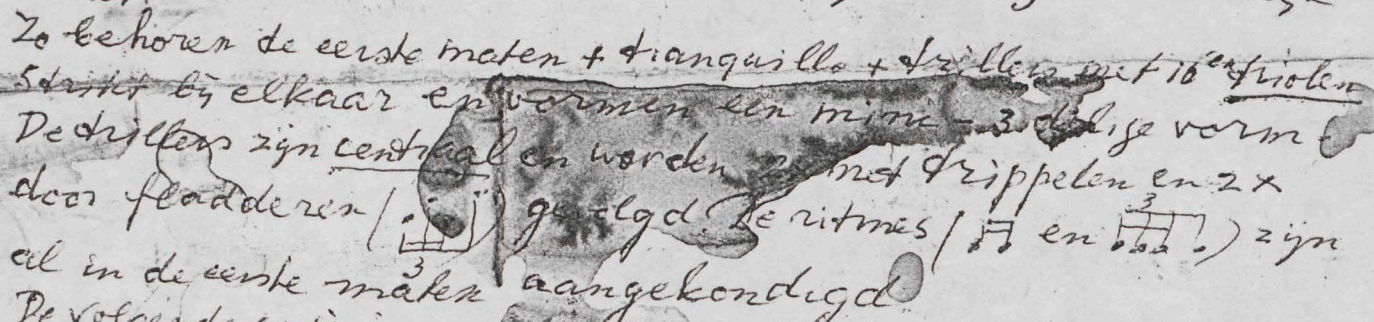 Zo behoren de eerste maten + tranquillo + trillers met 16en triolen
strikt bij elkaar en vormen een mini - 3 delige vorm.
De trillers zijn centraal en worden 2x met trippelen en 2x
door fladderen ( 3 ) gevolgd. De ritmes ( en 3 ) zijn
al in de eerste maten aangekondigd
De volgende